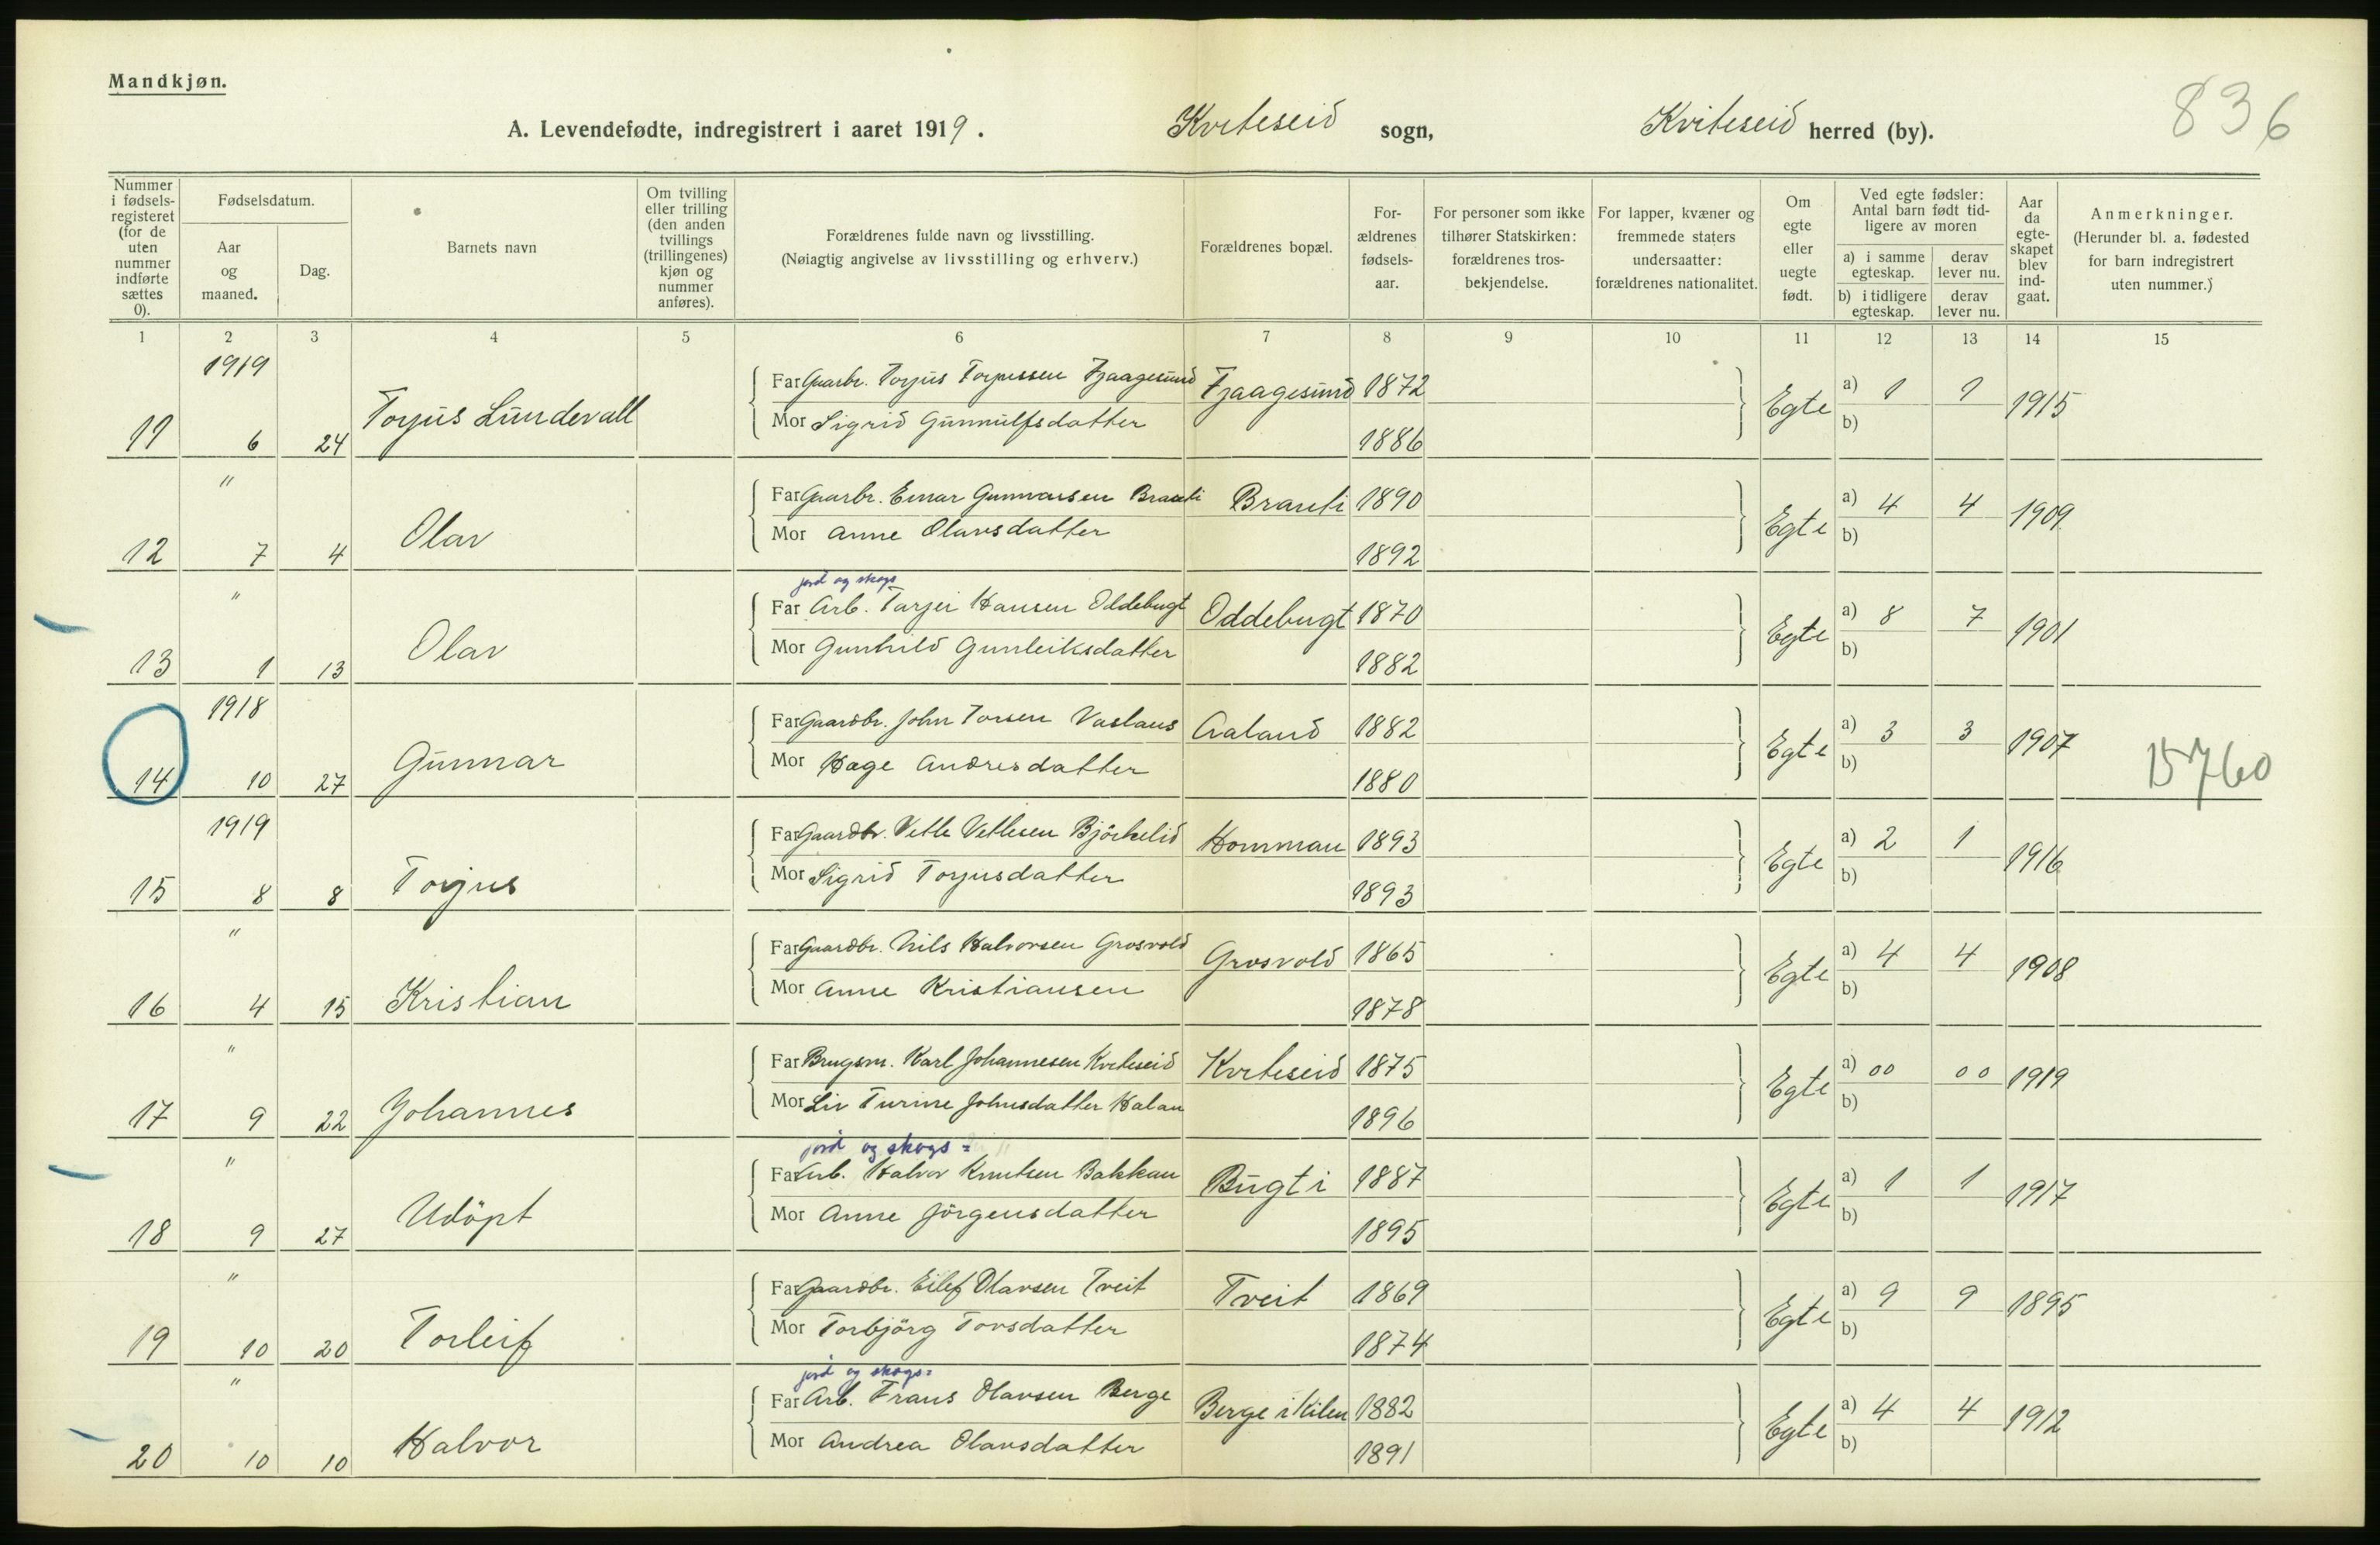 Mandkjøn.
A. Levendefødte, indregistrert i aaret 1919.
Kviteseid sogn,
Kviteseid herred (by).
836
Nummer i fødselsregisteret (for de uten nummer indførte sættes 0).
Fødselsdatum.
Aar og maaned.
Dag.
Barnets navn
Om tvilling eller trilling (den anden tvillings (trillingenes) kjøn og nummer anføres).
Forældrenes fulde navn og livsstilling.
(Nøiagtig angivelse av livsstilling og erhverv.)
Forældrenes bopæl.
Forældrenes fødselsaar.
For personer som ikke tilhører Statskirken: forældrenes trosbekjendelse.
For lapper, kvæner og fremmede staters undersaatter: forældrenes nationalitet.
Om egte eller uegte født.
Ved egte fødsler: Antal barn født tidligere av moren
a) i samme egteskap.
derav lever nu.
b) i tidligere egteskap.
derav lever nu.
Aar da egteskapet blev indgaat.
Anmerkninger.
(Herunder bl. a. fødested for barn indregistrert uten nummer.)
1 2 3 4 5 6 7 8 9 10 11 12 13 14 15
1919
11 6 24 Torjus Lundevall
Far Gaarbr. Torjus Torjussen Fjaagesund Fjaagesund 1872
Mor Sigrid Gunnulfsdatter 1886
Egte a) 1 1 1915
b)
"
12 7 4 Olav
Far Gaarbr. Einar Gunnarsen Brauti Brauti 1890
Mor Anne Olavsdatter 1892
Egte a) 4 4 1909
b)
"
13 1 13 Olav
jord og skogs
Far Arb. Tarjei Hansen Oddebugt Oddebugt 1870
Mor Gunhild Gunleiksdatter 1882
Egte a) 8 7 1901
b)
1918
14 10 27 Gunnar
Far Gaardbr. John Torsen Vaslaus Aaland 1882
Mor Hæge Andresdatter 1880
Egte a) 3 3 1907
b)
15760
1919
15 8 8 Torjus
Far Gaardbr. Vetle Vetlesen Björkelid Homman 1893
Mor Sigrid Torjusdatter 1893
Egte a) 2 1 1916
b)
"
16 4 15 Kristian
Far Gaardbr. Nils Halvorsen Grosvold Grosvold 1865
Mor Anne Kristiansen 1878
Egte a) 4 4 1908
b)
"
17 9 22 Johannes
Far Brugsm. Karl Johannesen Kviteseid Kviteseid 1875
Mor Liv Turine Johnsdatter Haland 1896
Egte a) 00 00 1919
b)
"
18 9 27 Udöpt
jord og skogs=
Far Arb. Halvor Knutsen Bakkan Bugti 1887
Mor Anne Jörgensdatter 1895
Egte a) 1 1 1917
b)
"
19 10 20 Torleif
Far Gaardbr. Eilef Olavsen Tveit Tveit 1869
Mor Torbjörg Tovsdatter 1874
Egte a) 9 9 1895
b)
"
20 10 10 Halvor
jord og skogs=
Far Arb. Frans Olavsen Berge Berge i Kilen 1882
Mor Andrea Olavsdatter 1891
Egte a) 4 4 1912
b)